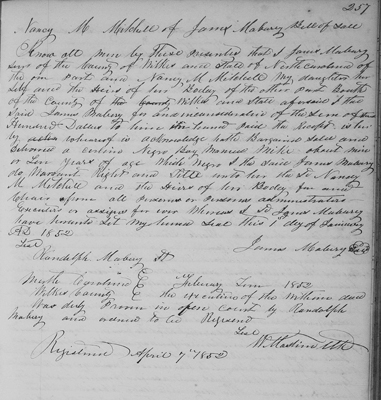 257
Nancy M Mitchell of James Mabery Bill of Sale
Know all men by These Presentes that I James Mabery
Senr of the County of Wilkes and State of North carolina of
the one Part and Nancy M Mitchell My daughter her
Self and the Heirs of her Bodey of the other Part Both
of the County of Wilkes and State aforesaid I the
Said James Mabery for and in concideration of the Sum of three
Hundred Dollars to him in hand Paid the Receipt
is acknowledge hath Bargained Saled and
Delivered a certin Negro Boy Named about nine
or Ten Years of age Which Negro I the Said James Mabery
do Warrant Right and Title unto her the Sd Nancy
M Mitchell and the Heirs of her Bodey for ever
Clear from all Persons or Persons administrators
Executors or assigns for ever Whereas I Sd James Mabery
have hereunto Set My hand Seal this 1st day of January
AD 1852
Test James Mabery Seal
Randolph Mabery Jt
North Carolina Febuary Term 1852
Wilkes County the execution of the Within deed
Was duly Proven in open Court by Randolph
Mabery and ordered to be Registered
Test
W Mastin Clk
Registered April 7th 1852